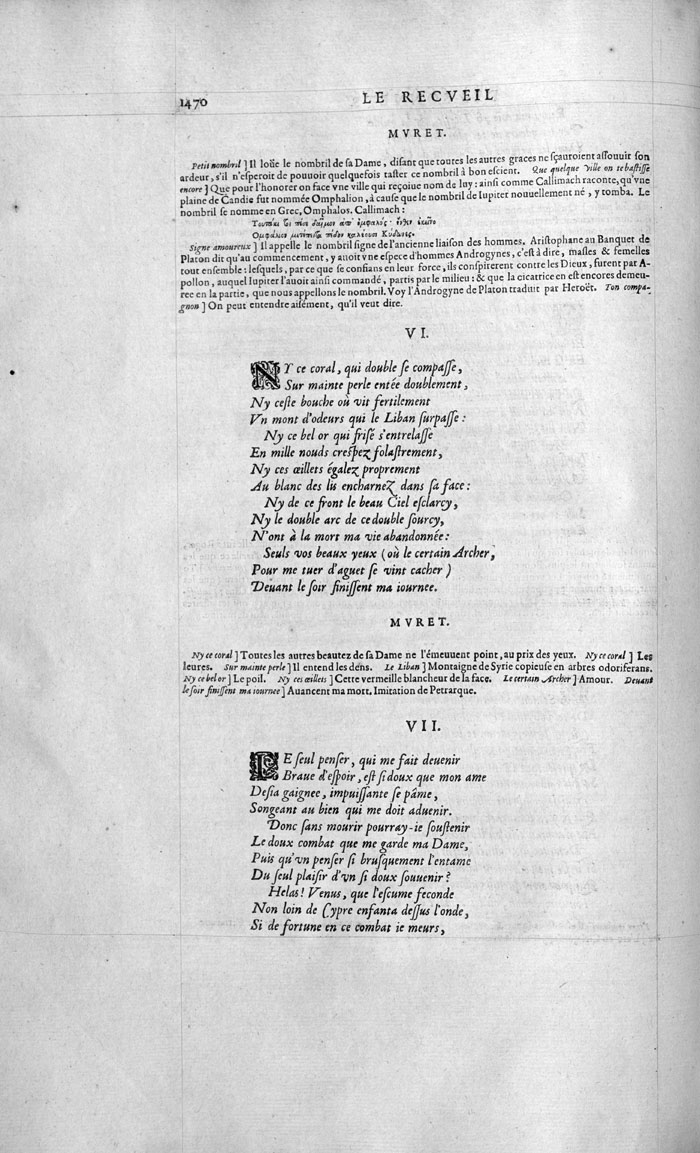 1470
LE RECVEIL
MVRET.
Petit nombril] Il loüe le nombril de sa Dame, disant que toutes les autres graces ne sçauroient assouuir son
ardeur, s'il n'esperoit de pouuoir quelquefois taster ce nombril à bon escient. Que quelque ville on te bastisse
encore] Que pour l'honorer on face vne ville qui reçoiue nom de luy: ainsi comme Callimach raconte, qu'vne
plaine de Candie fut nommée Omphalion, à cause que le nombril de Iupiter nouuellement né, y tomba. Le
nombril se nomme en Grec, Omphalos. Callimach:
Signe amoureux] Il appelle le nombril signe de l'ancienne liaison des hommes. Aristophane au Banquet de
Platon dit qu'au commencement, y auoit vne espece d'hommes Androgynes, c'est à dire, masles & femelles
tout ensemble: lesquels, par ce que se confians en leur force, ils conspirerent contre les Dieux, furent par A-
pollon, auquel Iupiter l'auoit ainsi commandé, partis par le milieu: & que la cicatrice en est encores demeu-
ree en la partie, que nous appellons le nombril. Voy l'Androgyne de Platon traduit par Heroët. Ton compa-
gnon] On peut entendre aisément, qu'il veut dire.
VI.
NY ce coral, qui double se compasse,
Sur mainte perle entée doublement,
Ny ceste bouche où vit fertilement
Vn mont d'odeurs qui le Liban surpasse:
Ny ce bel or qui frisé s'entrelasse
En mille nouds crespez folastrement,
Ny ces œillets égalez proprement
Au blanc des lis encharnez dans sa face:
Ny de ce front le beau Ciel esclarcy,
Ny le double arc de ce double sourcy,
N'ont à la mort ma vie abandonnée:
Seuls vos beaux yeux (où le certain Archer,
Pour me tuer d'aguet se vint cacher)
Deuant le soir finissent ma iournee.
MVRET.
Ny ce coral] Toutes les autres beautez de sa Dame ne l'émeuuent point, au prix des yeux. Ny ce coral] Les
leures. Sur mainte perle] Il entend les dens. Le Liban] Montaigne de Syrie copieuse en arbres odoriferans.
Ny ce bel or] Le poil. Ny ces œillets] Cette vermeille blancheur de la face. Le certain Archer] Amour. Deuant
le soir finissent ma iournee] Auancent ma mort. Imitation de Petrarque.
VII.
LE seul penser, qui me fait deuenir
Braue d'espoir, est si doux que mon ame
Desia gaignee, impuissante se pâme,
Songeant au bien qui me doit aduenir.
Donc sans mourir pourray-ie soustenir
Le doux combat que me garde ma Dame,
Puis qu'vn penser si brusquement l'entame
Du seul plaisir d'vn si doux souuenir?
Helas! Venus, que l'escume feconde
Non loin de Cypre enfanta dessus l'onde,
Si de fortune en ce combat ie meurs,